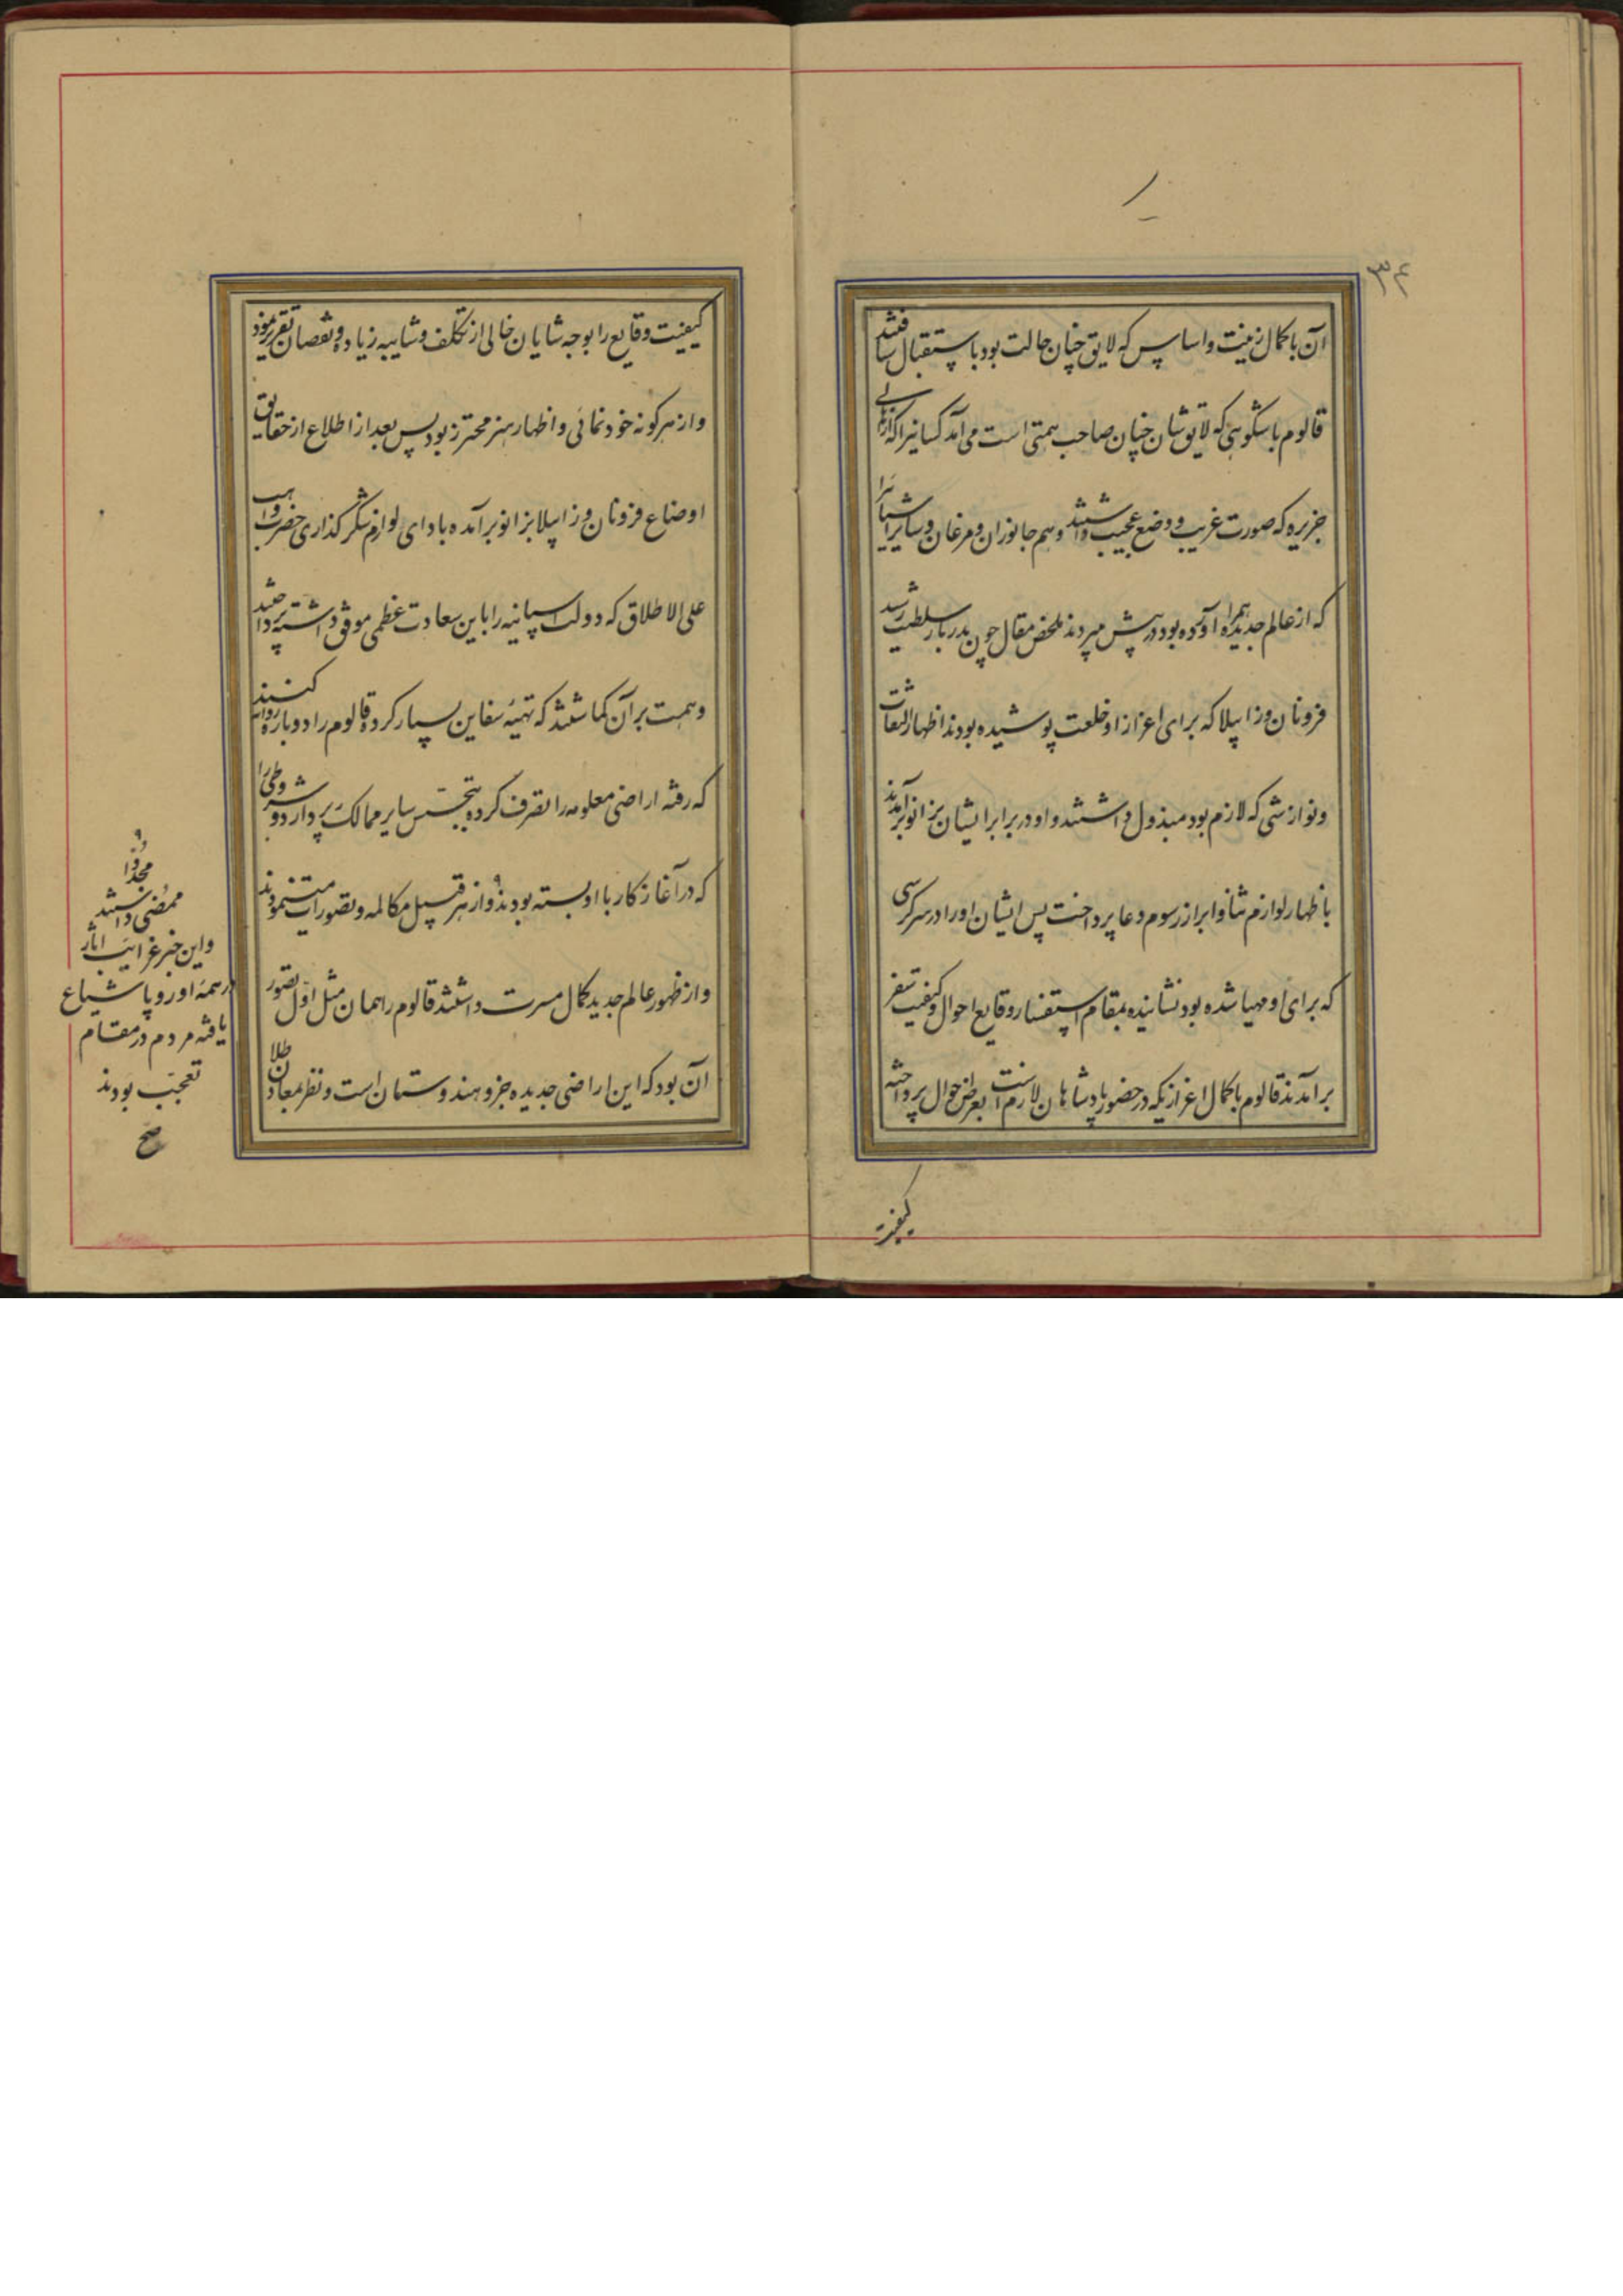 ۳۴
آن با کمال زینت و اساس که لایق چنان حالت بود باستقبال شتافتند
قالوم باشکوهی که لایق شان چنان صاحب همتی است می آمد کسانیرا که از اهالی
جزیره که صورت غریب و وضع عجیب داشتند و هم جانوران و مرغان و سایر اشیا را
که از عالم جدید همراه آورده بود در پیش میبردند ملخص مقال چون بدربار سلطنت رسید
فرونان و زابیلا که برای اعزاز او خلعت پوشیده بودند اظهار التفات
و نوازشی که لازم بود مبذول داشتند و او در برابر ایشان بزانو برآمد
باظهار لوازم ثنا و ابراز رسوم دعا پرداخت پس ایشان او را در سر کرسی
که برای او مهیا شده بود نشانیده بمقام استفسار وقایع احوال و کیفیت سفر
برآمدند قالوم با کمال اعزازیکه در حضور پادشاهان لازم است بعرض احوال پرداخته
کیفیت
کیفیت وقایع را بوجه شایان خالی از تکلف و شایبه زیاده و نقصان تقریر نمود
و از هر کونه خودنمائی و اظهار هنر محترز بود پس بعد از اطلاع از حقایق
اوضاع فرونان و زابیلا بزانو برآمده بادای لوازم شکر کذاری حضرت واهب
علی الاطلاق که دولت اسپانیه را باین سعادت عظمی موفق داشته پرداختند
و همت بر آن کماشتند که تهیه سفاین بسیار کرده قالوم را دوباره روانه کنند
که رفته اراضی معلومه را تصرف کرده بتجسس سایر ممالک پردازد و شروطی را
که در آغاز کار با او بسته بودند و از هر قبیل مکالمه و تصورات مینمودند
و از ظهور عالم جدید کمال مسرت داشتند قالوم را همان مثل اول تصور
آن بود که این اراضی جدیده جزو هندوستان است و نظر بمعادن طلا
مجددا
ممضی داشتند
و این خبر غرایب آثار
در همه اوروپا شیاع
یافته مردم در مقام
تعجب بودند
صح